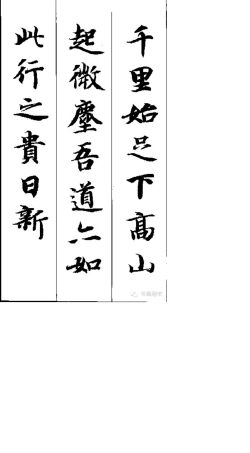 千里始足下高山
起微塵吾道亦如
此行之貴日新